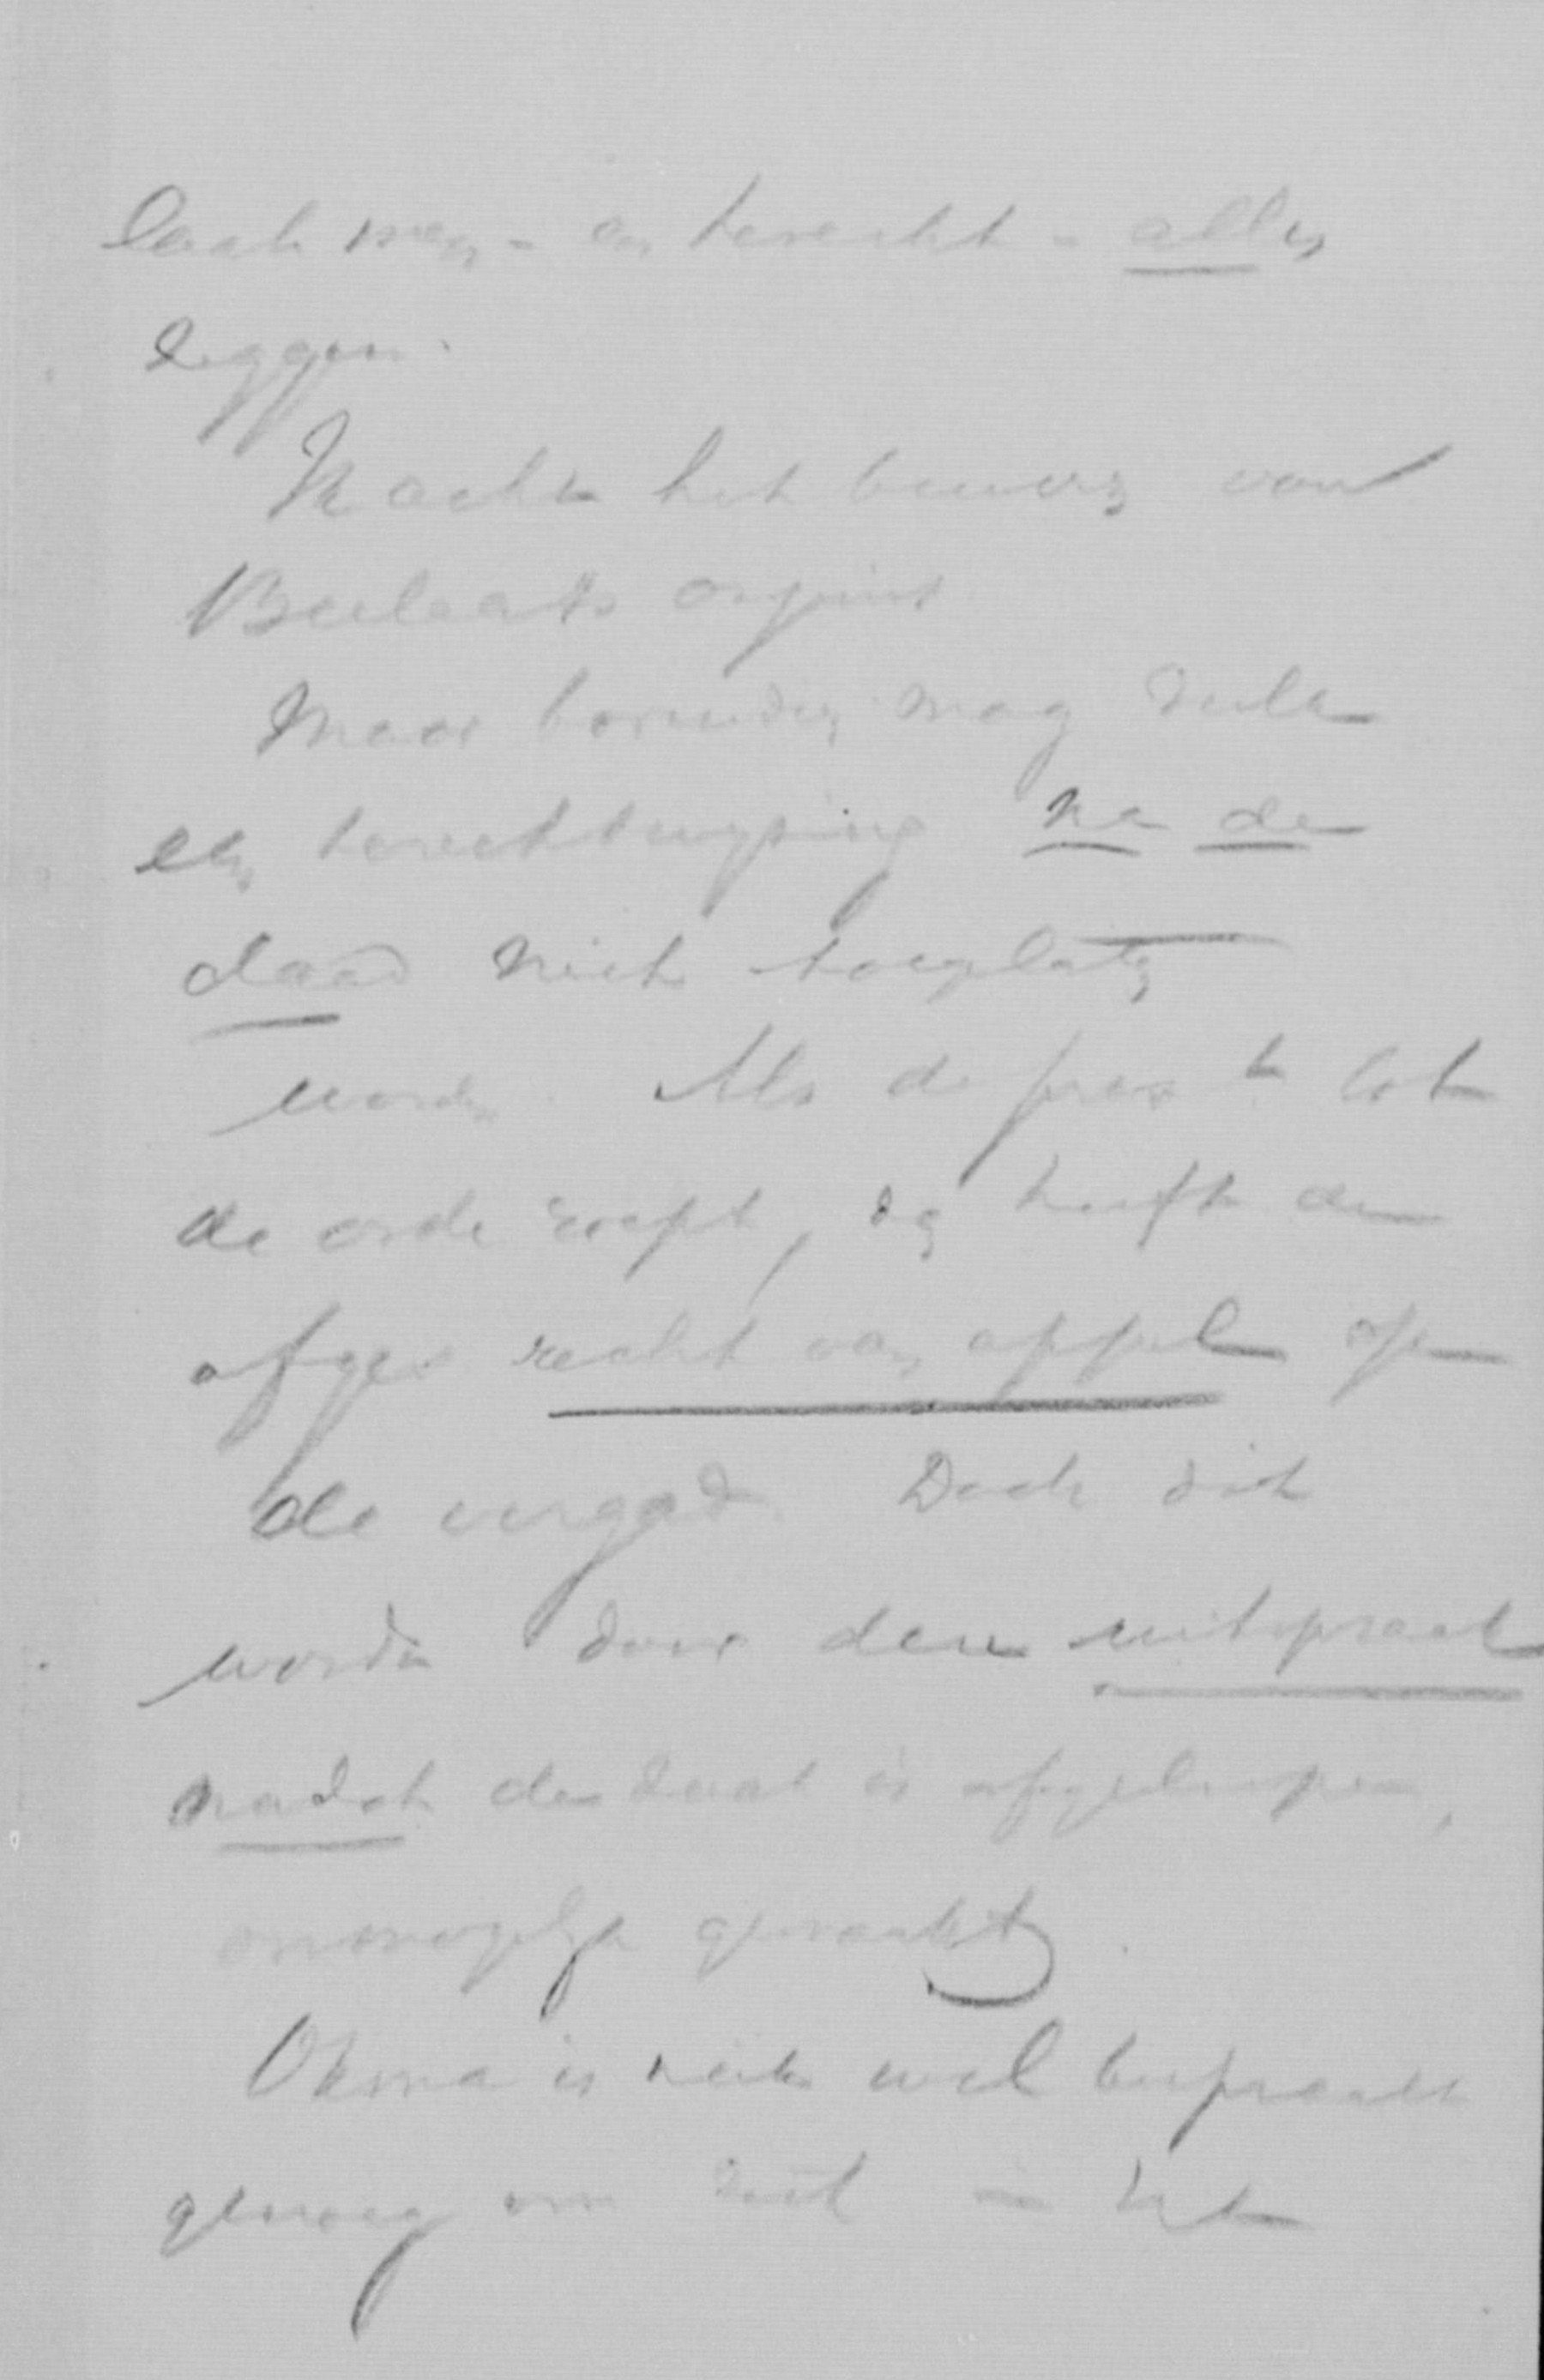 laat men - en terecht - alles
zeggen.
Macht het bewijs van
Beelaerts
Maar bovendien mag zulk
een terechtwijzing na de
daad niet toegelaten
worden. Als de pres. tot
de orde roept, dan heeft de
afgev recht van appel op
de vergad. Doch dit
wordt door den uitspraak
nadat de daad is afgeloopen,
onmogelijk gemaakt.
Okma is niet wel bespraakt
genoeg om zich in het